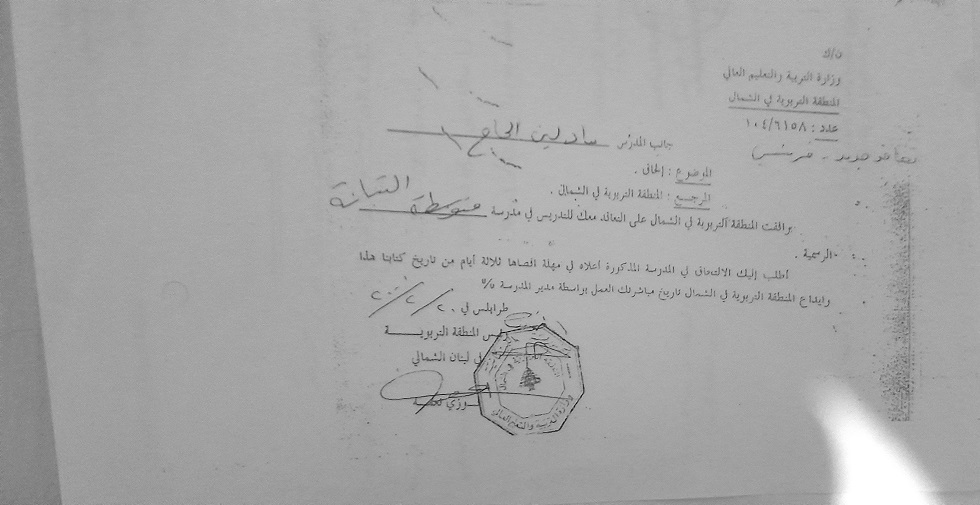 ن/ك
وزارة التربية والتعليم العالي
المنطقة التربوية في الشمال
عدد : ١٠٤/٦١٥٨
تعاقد جديد - فرنسي
جانب المدرّس مادلين الحاج
الموضوع : إلحاق .
المرجع : المنطقة التربوية في الشمال .
وافقت المنطقة التربوية في الشمال على التعاقد معك للتدريس في مدرسة متوسطة التبانة
الرسمية .
أطلب إليك الالتحاق في المدرسة المذكورة أعلاه في مهلة أقصاها ثلاثة أيام من تاريخ كتابنا هذا
وإيداع المنطقة التربوية في الشمال تاريخ مباشرتك العمل بواسطة مدير المدرسة %
طرابلس في
رئيس المنطقة التربويـــــة
في لبنان الشمالي
وزارة التربية والتعليم العالي